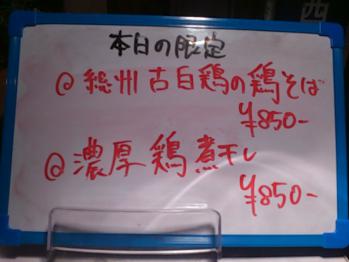 本日の限定
@ 総州古白鶏の鶏そば
¥850-
@ 濃厚鶏煮干し
¥850-
西